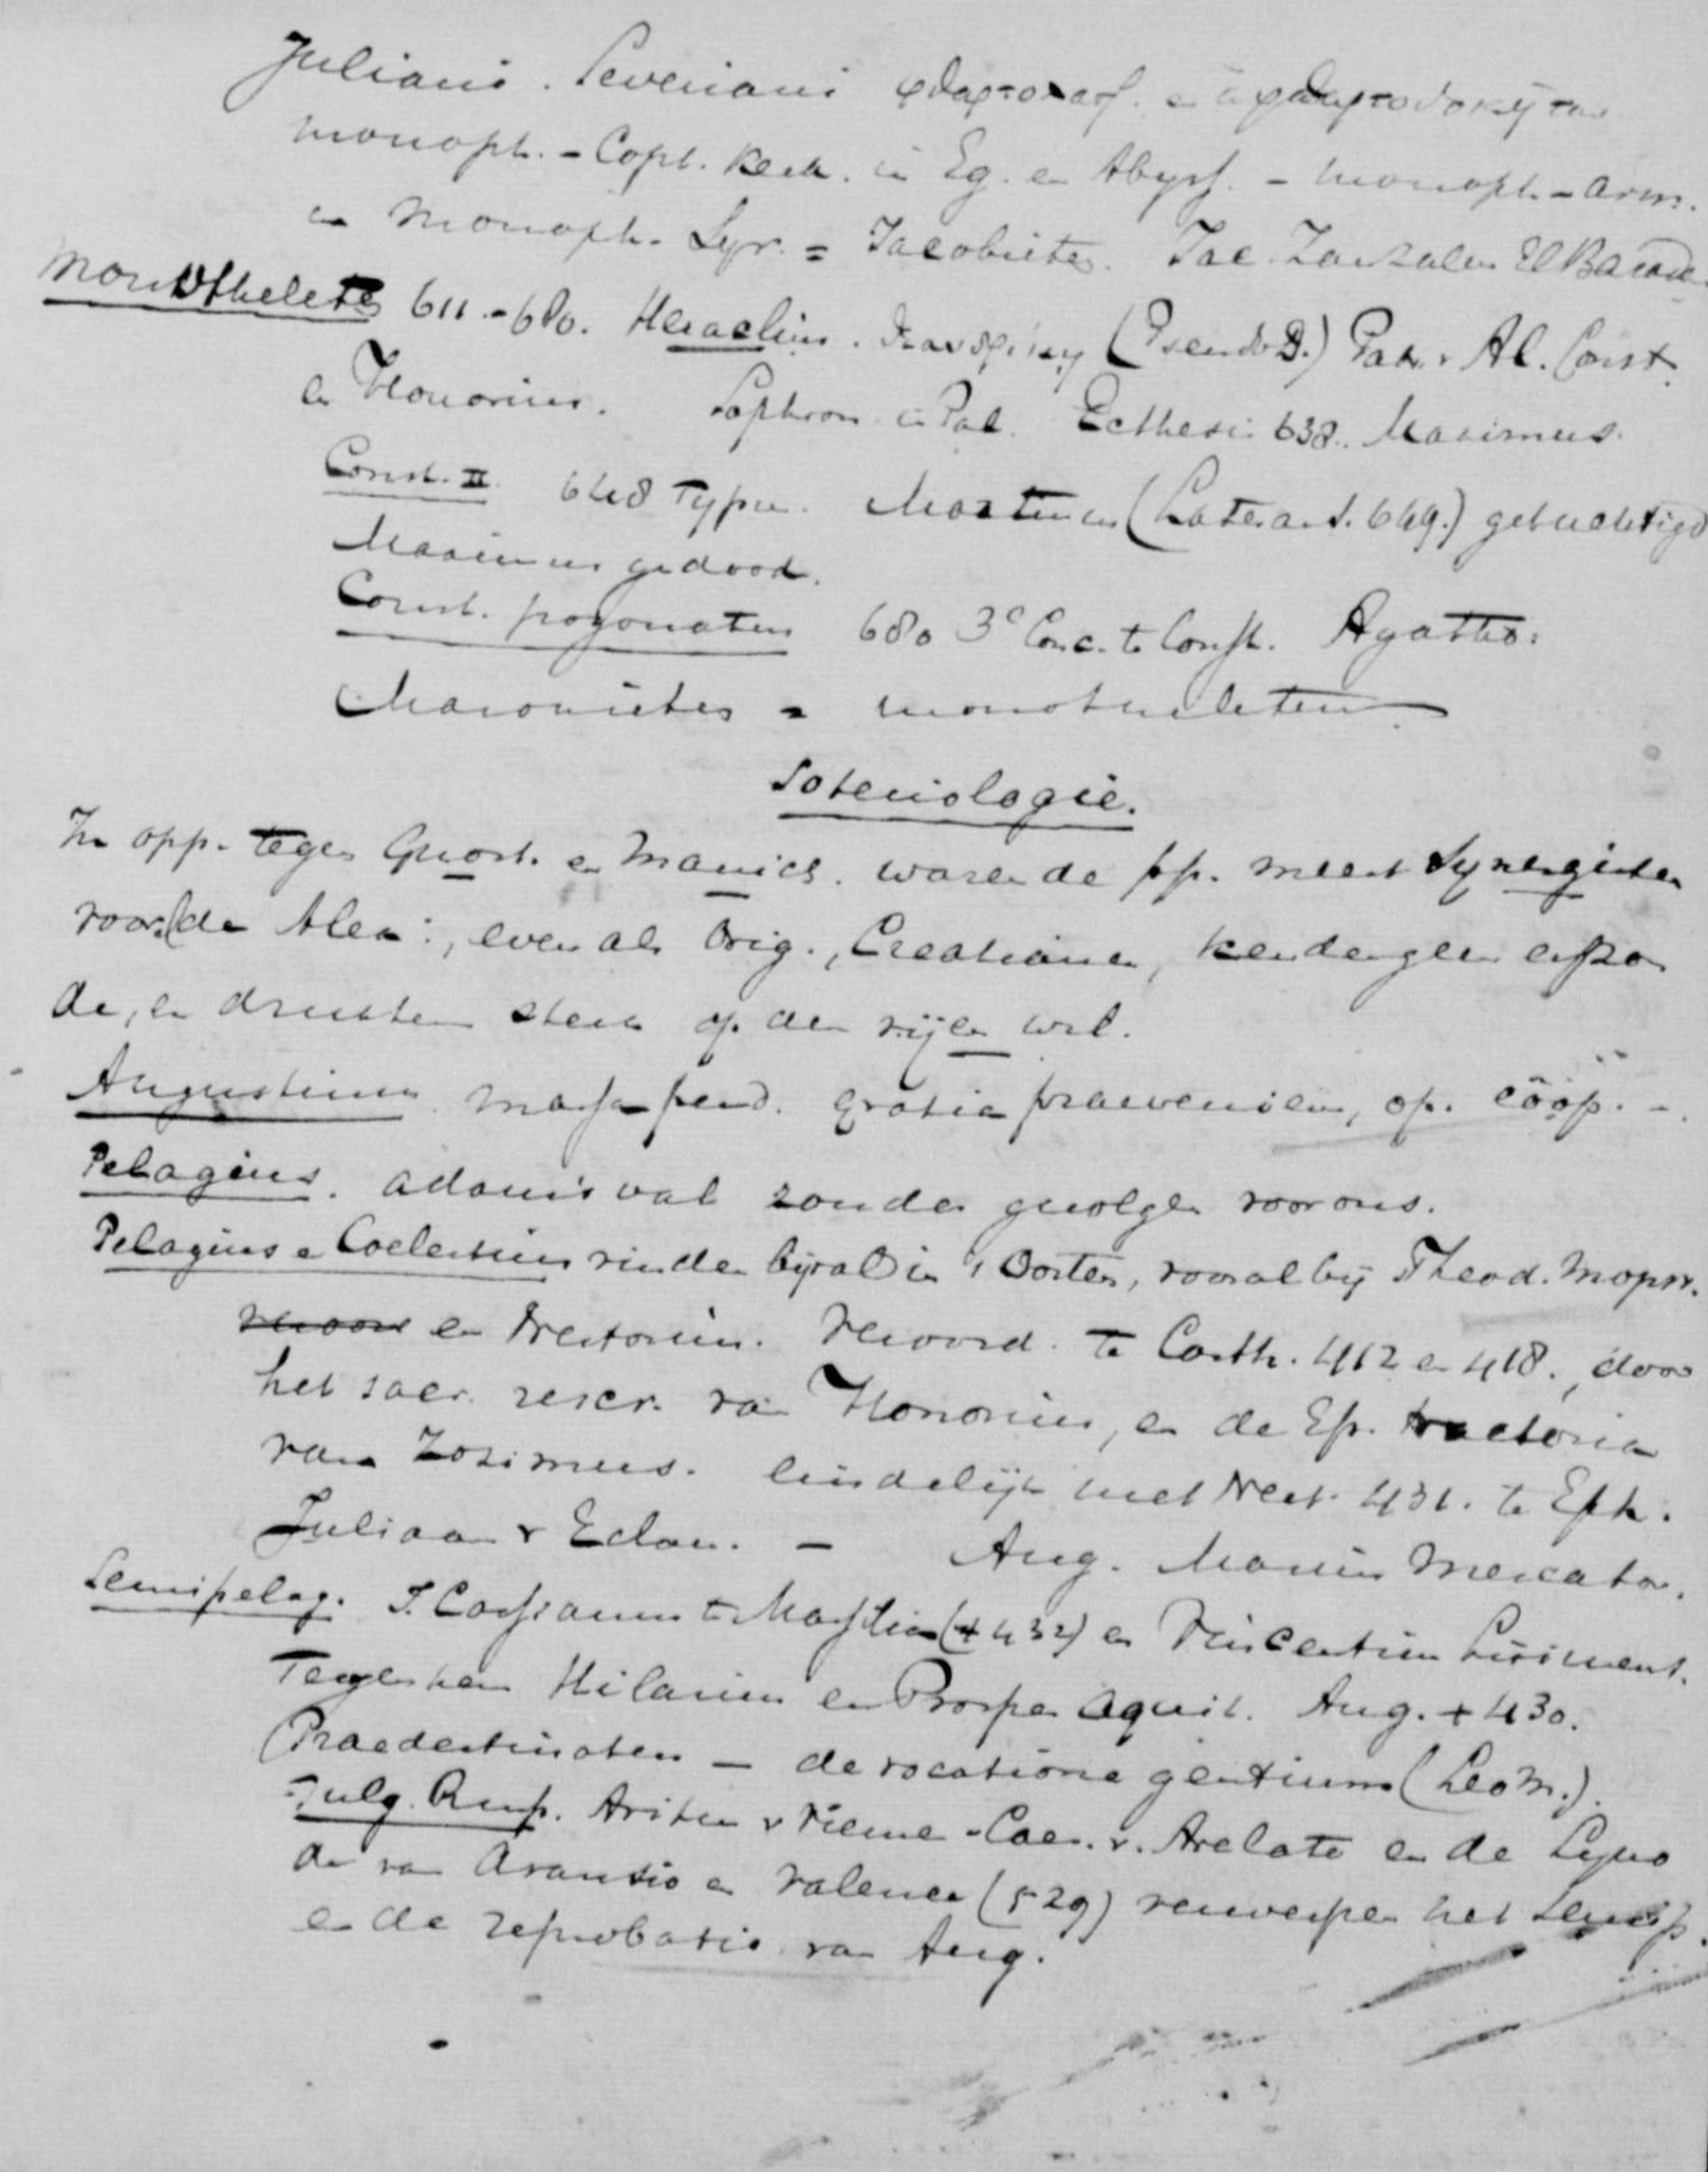 Juliani. Severiani φθαρτολατ. en ἀφθαρτοδοκηται
monoph. - Copt. Kerk. in Eg. en Abyss. - monoph. - Arm.
en monoph. Syr. = Jacobieten. Jac. Zanzalen El Baradai
Monotheleten 611.-680. Heraclius. (Pseudo D.) Patr. v Al. Const.
en Honorius. Sophron. in Pal. Ecthesis 638. Maximus.
Const. II. 648 Typus. Martinus (Lateran S. 649.) getuchtigd
Maximus gedood.
Const. pogonatus 680 3e Conc. te Const. Agatho.
Maronieten = monotheleten
Soteriologie.
In opp. tegen Gnost. en Manich. waren de pp. meest Synergisten
vooral de Alex:, even als Orig., Creatianen, kenden geen erfzon
de, en drukten sterk op den vrijen wil.
Augustinus massa perd. gratia praeveniens, op. coöp. -
Pelagius. Adams val zonder gevolgen voor ons.
Pelagius en Coelestius vinden bijval in 't Oosten, vooral bij Theod. Mopsv.
en Nestorius. Veroord. te Carth. 412 en 418., door
het sacr. rescr. van Honorius, en de Ep. tractoria
van Zosimus. Eindelijk met Nest. 431. te Eph.
Juliaan v Eclan. - Aug. Marius Mercator.
Semipelag. J. Cassianus te Massilia (+ 432) en Vincentius Lirinens.
Tegen hen Hilarius en Prosper Aquit. Aug. + 430.
Praedestinaten - de vocatione gentium (Leo M.).
Fulg. Rusp. Avitus v Vienne - Caes. v. Arelate en de Syno
de van Arausio en Valence (529) verwerpen het Semip.
en de reprobatio van Aug.